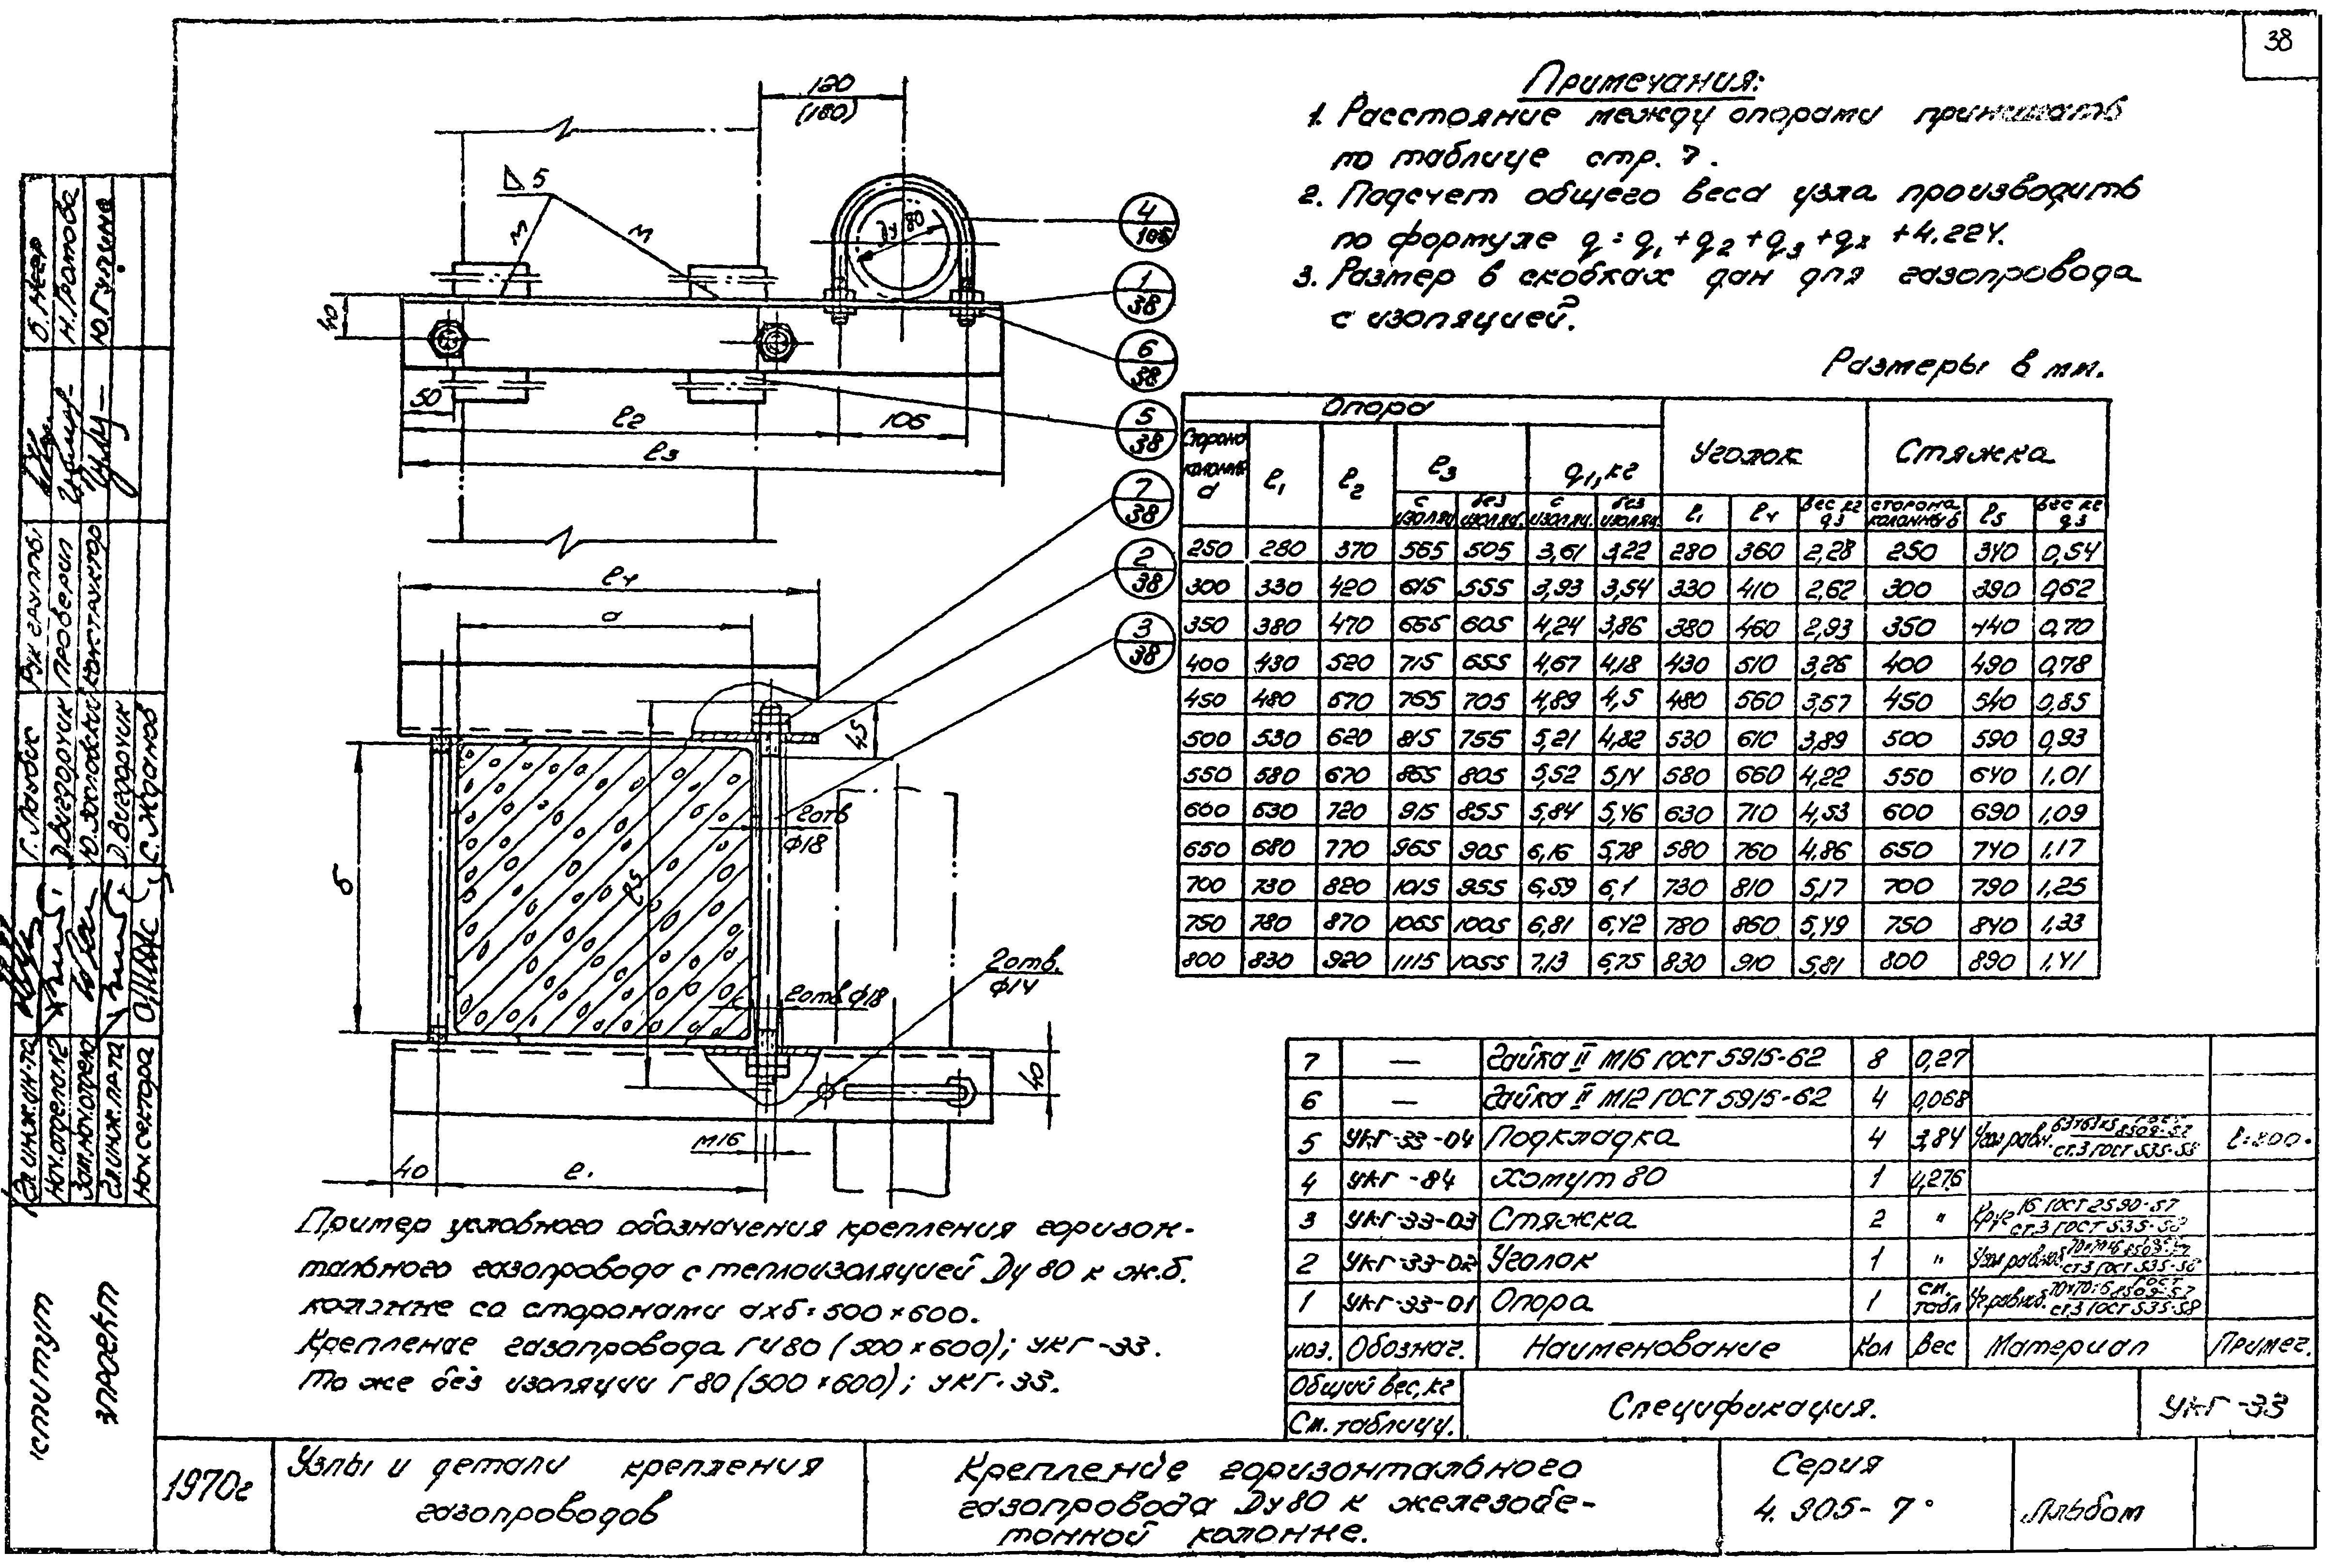 38
Примечания:
1. Расстояние между опорами принимать
по таблице стр. 7.
2. Подсчет общего веса узла производить
по формуле q = q1 + q2 + q3 + qx + 4.224.
3. Размер в скобках дан для газопровода
с изоляцией.
Размеры в мм.
120
(180)
5
м
м
Ду 80
40
50
l2
106
l3
4
106
1
38
6
38
5
38
7
38
2
38
3
38
l4
а
45
б
l5
2отв
ф18
2отв ф18
2отв.
ф14
40
М16
40
l1
Опора
Уголок
Стяжка
Сторона колонны а
l1
l2
l3
q1, кг
с изоляц.
без изоляц.
с изоляц.
без изоляц.
l1
l4
вес кг q3
сторона колонны б
l5
вес кг q3
250 280 370 565 505 3,61 3,22 280 360 2,28 250 340 0,54
300 330 420 615 555 3,93 3,54 330 410 2,62 300 390 0,62
350 380 470 665 605 4,24 3,86 380 460 2,93 350 440 0,70
400 430 520 715 655 4,67 4,18 430 510 3,26 400 490 0,78
450 480 570 765 705 4,89 4,5 480 560 3,57 450 540 0,85
500 530 620 815 755 5,21 4,82 530 610 3,89 500 590 0,93
550 580 670 865 805 5,52 5,14 580 660 4,22 550 640 1,01
600 630 720 915 855 5,84 5,46 630 710 4,53 600 690 1,09
650 680 770 965 905 6,16 5,78 580 760 4,86 650 740 1,17
700 730 820 1015 955 6,59 6,1 730 810 5,17 700 790 1,25
750 780 870 1065 1005 6,81 6,42 780 860 5,49 750 840 1,33
800 830 920 1115 1055 7,13 6,75 830 910 5,81 800 890 1,41
7 — Гайка II М16 ГОСТ 5915-62 8 0,27
6 — Гайка II М12 ГОСТ 5915-62 4 0,068
5 УКГ-33-04 Подкладка 4 3,84 Угол равн. 63х63х5 ГОСТ 8509-57 ст.3 ГОСТ 535-58 l=800.
4 УКГ-84 Хомут 80 1 0,276
3 УКГ-33-03 Стяжка 2 " Круг 16 ГОСТ 2590-57 ст.3 ГОСТ 535-58
2 УКГ-33-02 Уголок 1 " ст3 ГОСТ 535-58
1 УКГ-33-01 Опора 1 см. табл ГОСТ 8509-57 ст.3 ГОСТ 535-58
поз. Обознач. Наименование Кол Вес Материал Примеч.
Общий вес, кг
См. таблицу.
Спецификация.
УКГ-33
Пример условного обозначения крепления горизон-
тального газопровода с теплоизоляцией Ду 80 к ж.б.
колонне со сторонами ахб=500×600.
Крепление газопровода ГИ 80 (500×600); УКГ-33.
То же без изоляции Г 80 (500×600); УКГ-33.
1970г
Узлы и детали крепления
газопроводов
Крепление горизонтального
газопровода Ду 80 к железобе-
тонной колонне.
Серия
4.905-7
Альбом
Рук группы
Проверил
Конструктор
Н. Громова
Д. Вигдорчик
Д. Вигдорчик
С. Жданов
Гл. инж. ин-та
Нач. отдела №2
Зам. нач. отдела
Гл. инж. пр-та
Нач. сектора